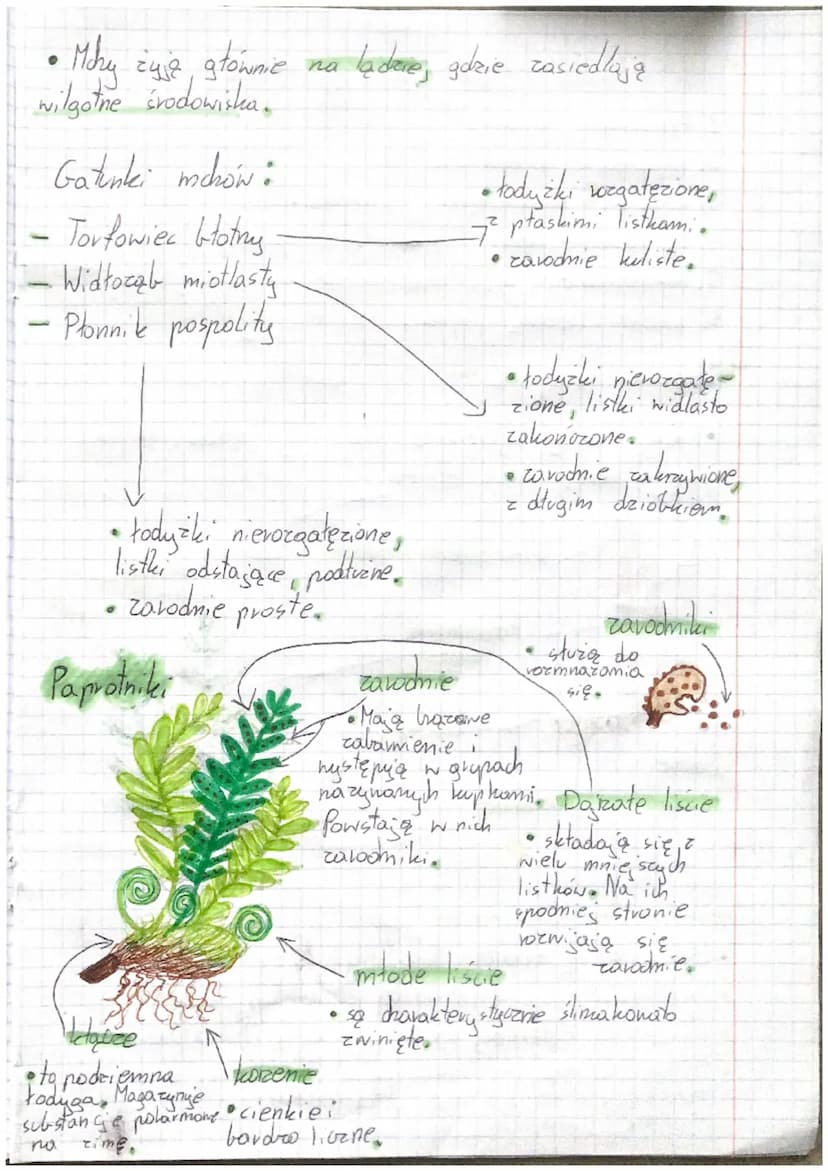 • Mchy żyją głównie na lądzie, gdzie zasiedlają
wilgotne środowiska.
Gatunki mchów:
– Torfowiec błotny
– Widłoząb miotlasty
– Płonnik pospolity
• łodyżki rozgałęzione,
z płaskimi listkami.
• zarodnie kuliste.
• łodyżki nierozgałę–
zione, listki widlasto
zakończone.
• zarodnie zakrzywione,
z długim dzióbkiem.
• łodyżki nierozgałęzione,
listki odstające, podłużne.
• zarodnie proste.
Paprotniki
zarodnie
• Mają brązowe
zabarwienie i
występują w grupach
nazywanych kupkami.
Powstają w nich
zarodniki.
zarodniki
• służą do
rozmnażania
się.
Dojrzałe liście
• składają się z
wielu mniejszych
listków. Na ich
spodniej stronie
rozwijają się
zarodnie.
młode liście
• są charakterystycznie ślimakowato
zwinięte.
kłącze
• to podziemna
łodyga. Magazynuje
substancje pokarmowe
na zimę.
korzenie
• cienkie i
bardzo liczne.